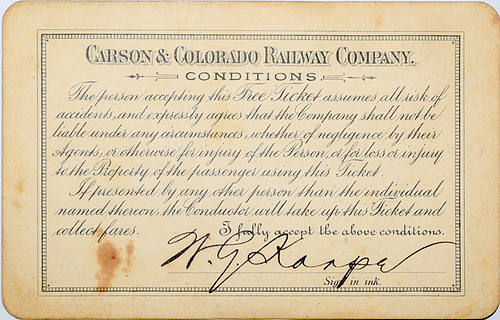 CARSON & COLORADO RAILWAY COMPANY.
CONDITIONS.
The person accepting this Free Ticket assumes all risk of
accidents, and expressly agrees that the Company shall not be
liable under any circumstances, whether of negligence by their
Agents, or otherwise for injury of the Person, or for loss or injury
to the Property of the passenger using this Ticket.
If presented by any other person than the individual
named thereon, the Conductor will take up this Ticket and
collect fares. I fully accept the above conditions.
W. G.
Sign in ink.